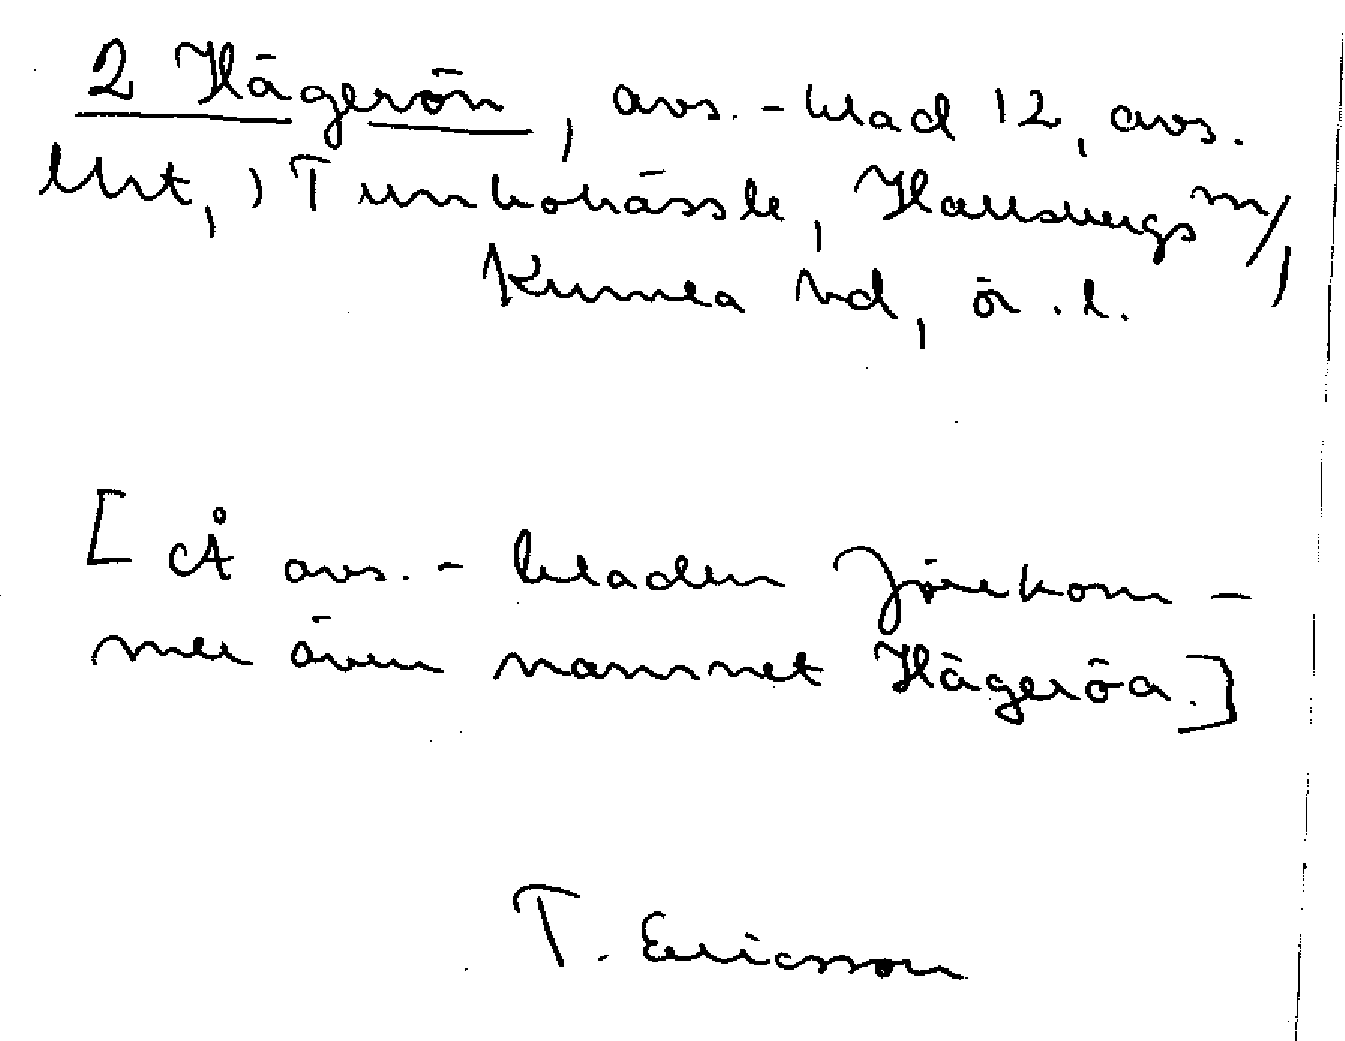 2 Hägerön, avs.-blad 12, avs.
litt, ) Tunbohässle, Hallsbergs m/,
Kumla hd, ö.l.
[Å avs.-bladen förekom-
mer även namnet Hägeröa.]
T. Ericsson